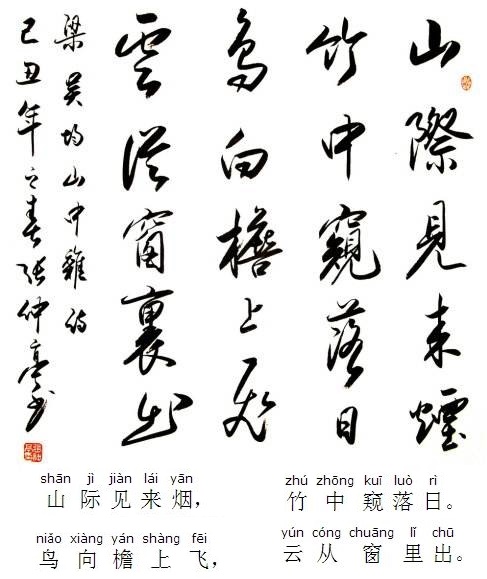 山際見来煙
竹中窺落日
鳥向檐上飛
雲從窗裏出
梁吴均山中雜詩
己丑年之春張仲亭書
shān jì jiàn lái yān
山际见来烟，
zhú zhōng kuī luò rì
竹中窥落日。
niǎo xiàng yán shàng fēi
鸟向檐上飞，
yún cóng chuāng lǐ chū
云从窗里出。